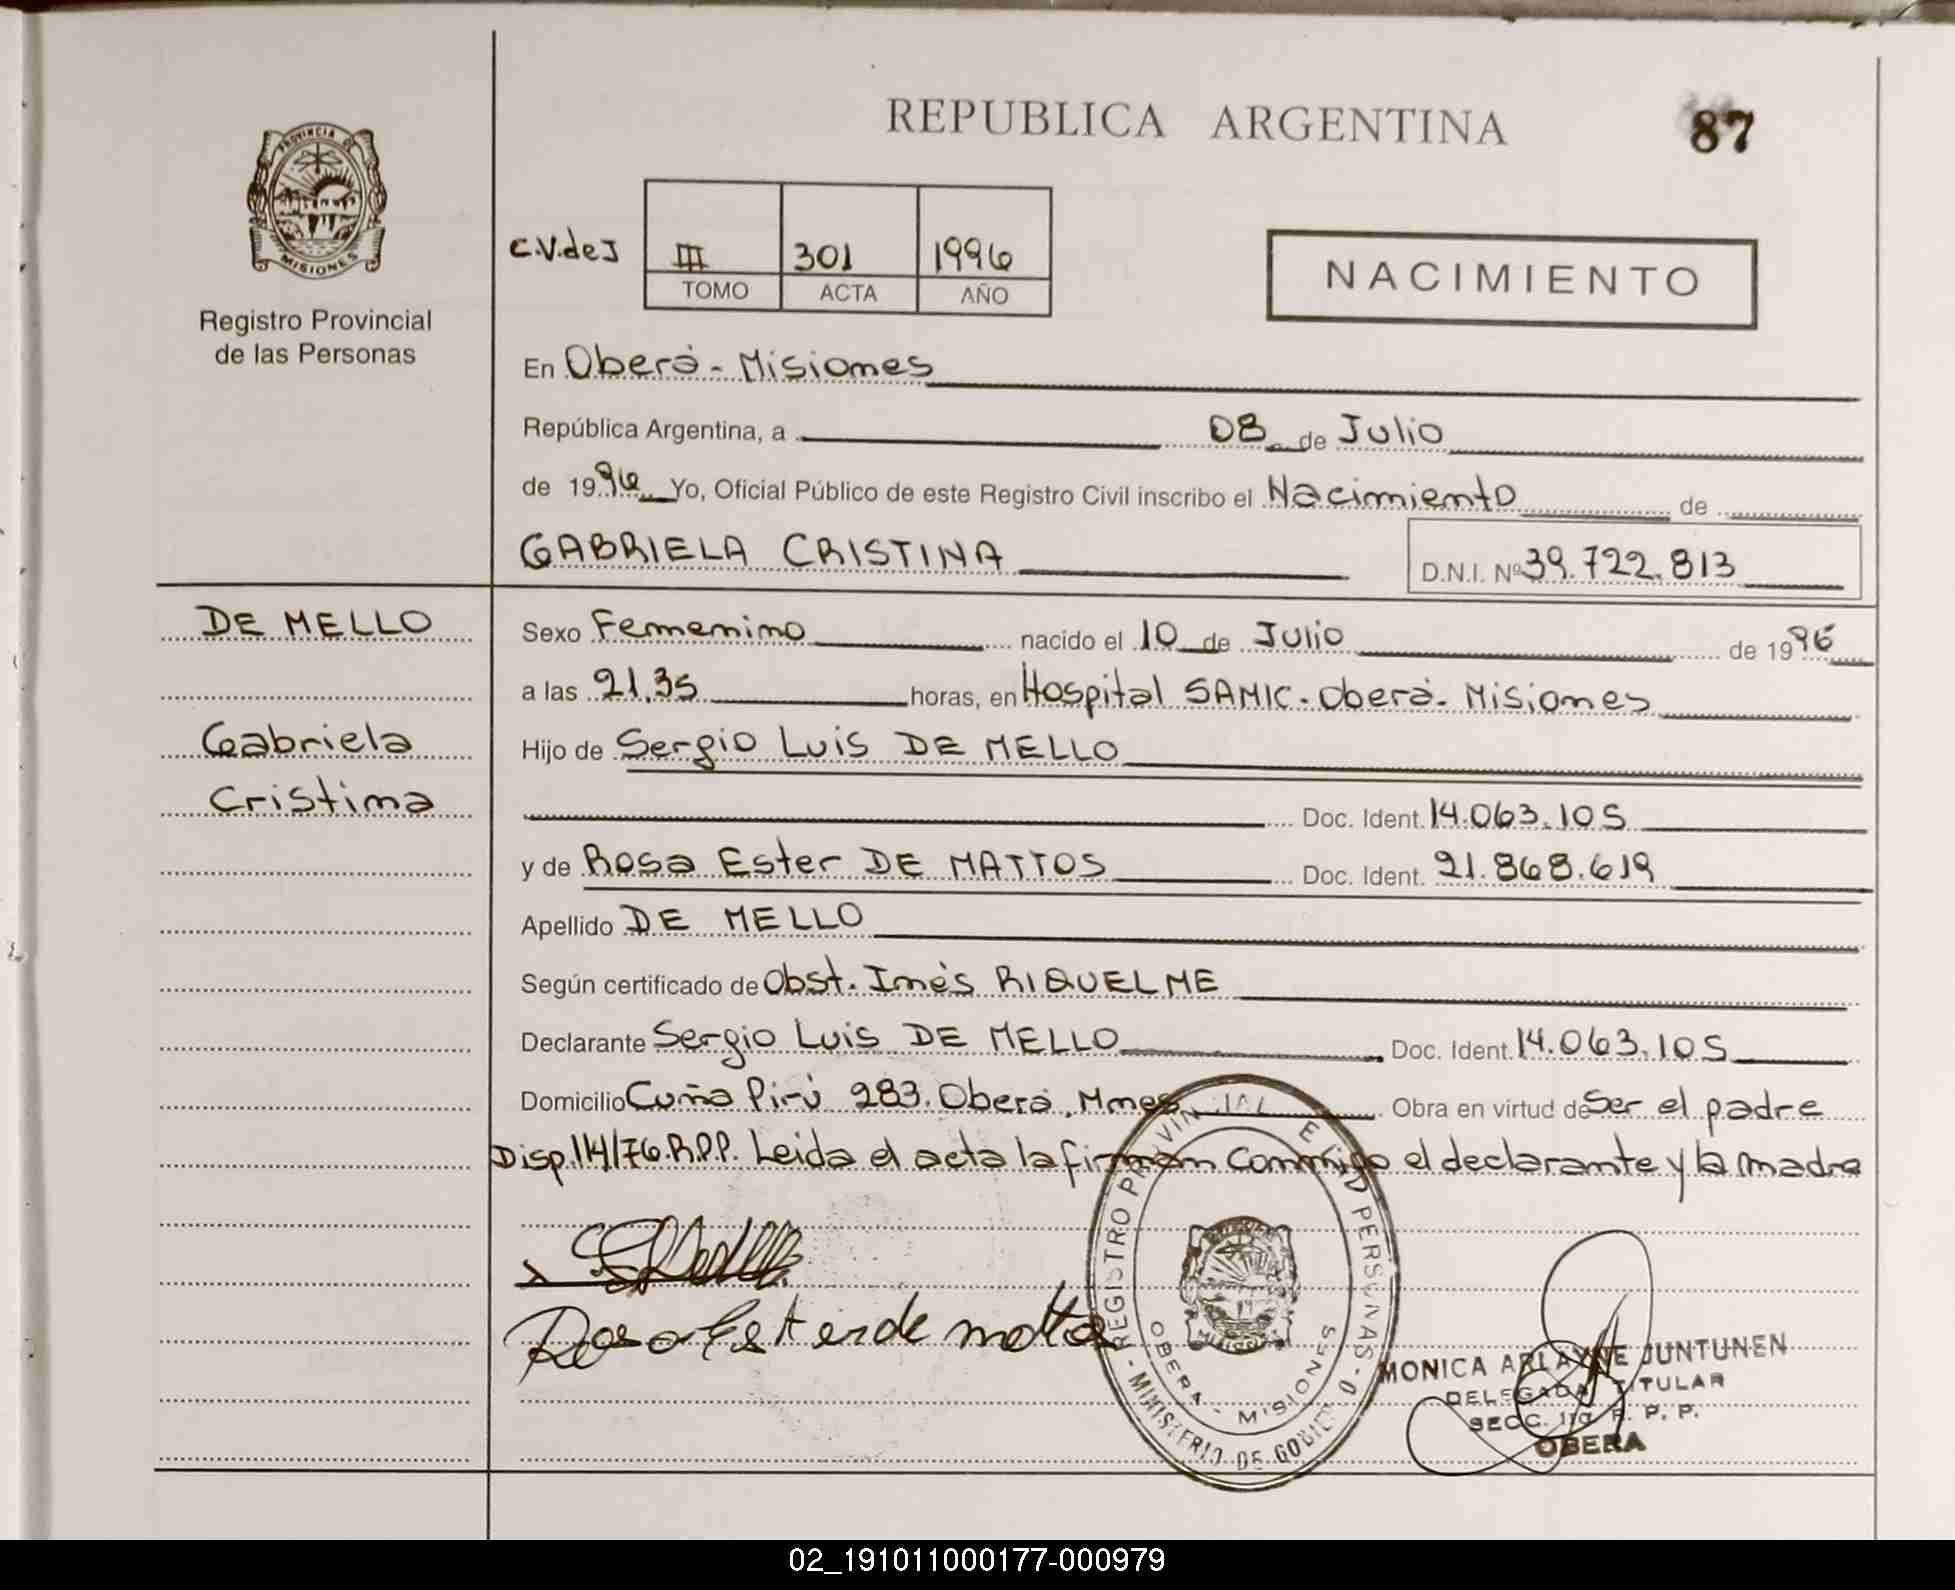 REPUBLICA ARGENTINA
87
PROVINCIA DE
MISIONES
Registro Provincial
de las Personas
C.V.deJ
III 301 1996
TOMO ACTA AÑO
NACIMIENTO
En Oberá - Misiones
República Argentina, a 08 de Julio
de 1996 Yo, Oficial Público de este Registro Civil inscribo el Nacimiento de
GABRIELA CRISTINA D.N.I. Nº 39.722.813
DE MELLO
Gabriela
Cristina
Sexo Femenino nacido el 10 de Julio de 1996
a las 21,35 horas, en Hospital SAMIC - Oberá - Misiones
Hijo de Sergio Luis DE MELLO
Doc. Ident. 14.063.105
y de Rosa Ester DE MATTOS Doc. Ident. 21.868.619
Apellido DE MELLO
Según certificado de Obst. Inés RIQUELME
Declarante Sergio Luis DE MELLO Doc. Ident. 14.063.105
Domicilio Cuña Pirú 283. Oberá, Mnes Obra en virtud de Ser el padre
Disp.14/76.R.P.P. Leida el acta la firman conmigo el declarante y la madre
Rosa Ester de mattos
REGISTRO PROVINCIAL DE LAS PERSONAS
OBERA - MISIONES
MINISTERIO DE GOBIERNO
MONICA ARLAYNE JUNTUNEN
DELEGADA TITULAR
SECC. R. P. P.
OBERA
02_191011000177-000979